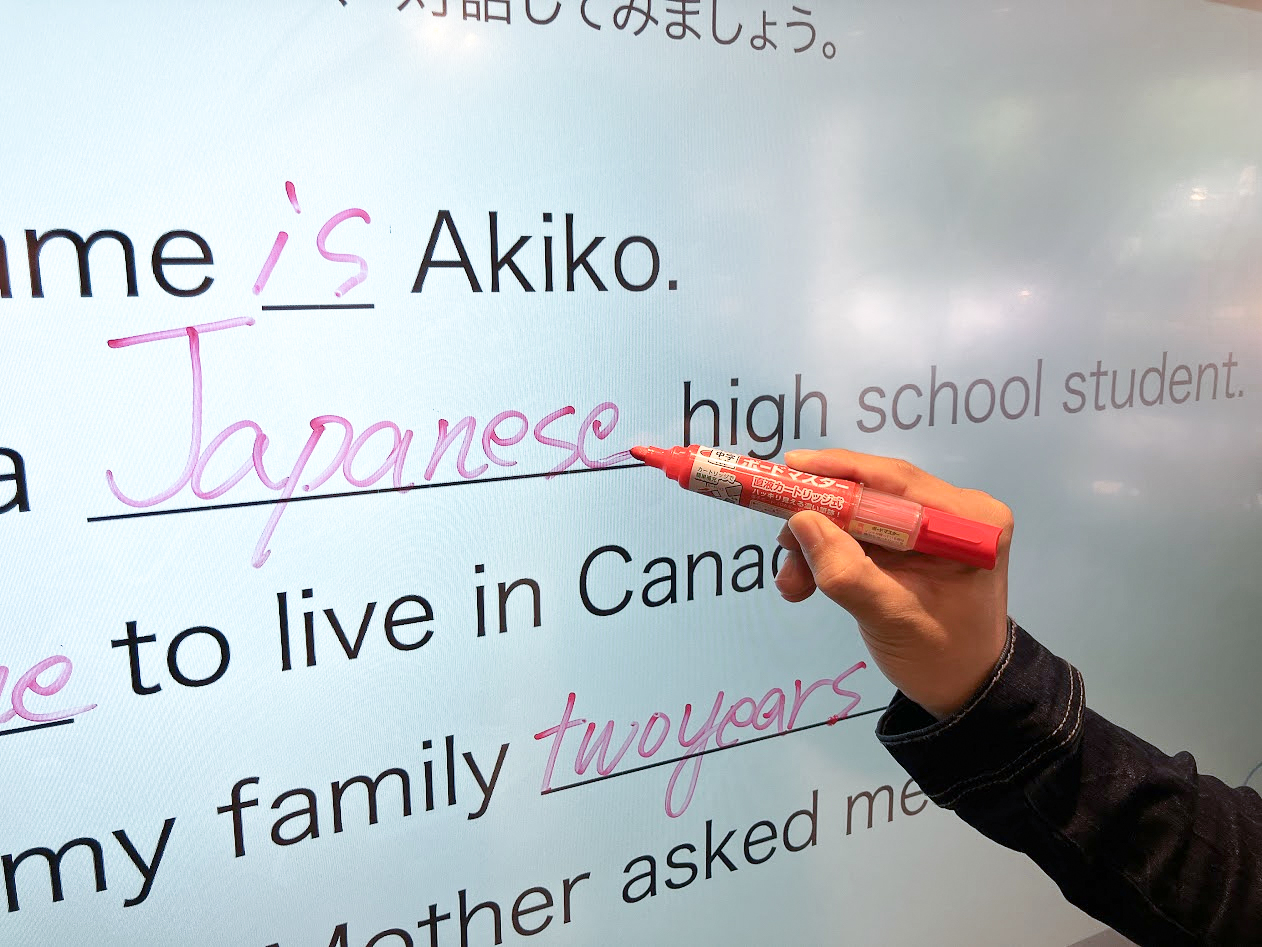 対話してみましょう。
ame is Akiko.
a Japanese high school student.
to live in Canad
my family two years
Mother asked me
中字 ボードマスター
直液カートリッジ式
ハッキリ見える濃い筆感!
ボードマスター